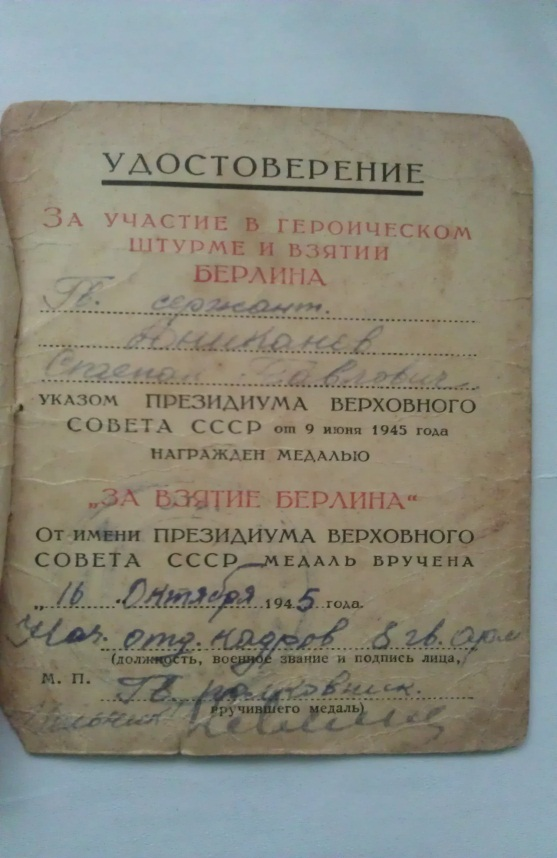 УДОСТОВЕРЕНИЕ
ЗА УЧАСТИЕ В ГЕРОИЧЕСКОМ
ШТУРМЕ И ВЗЯТИИ
БЕРЛИНА
Гв. сержант.
Аниканев
Степан Павлович
УКАЗОМ ПРЕЗИДИУМА ВЕРХОВНОГО
СОВЕТА СССР от 9 июня 1945 года
НАГРАЖДЕН МЕДАЛЬЮ
„ЗА ВЗЯТИЕ БЕРЛИНА“
ОТ ИМЕНИ ПРЕЗИДИУМА ВЕРХОВНОГО
СОВЕТА СССР МЕДАЛЬ ВРУЧЕНА
„16 Октября 1945 года.
Нач. отд. кадров 8 гв. арм
(должность, военное звание и подпись лица,
М. П. Гв. полковник.
вручившего медаль)